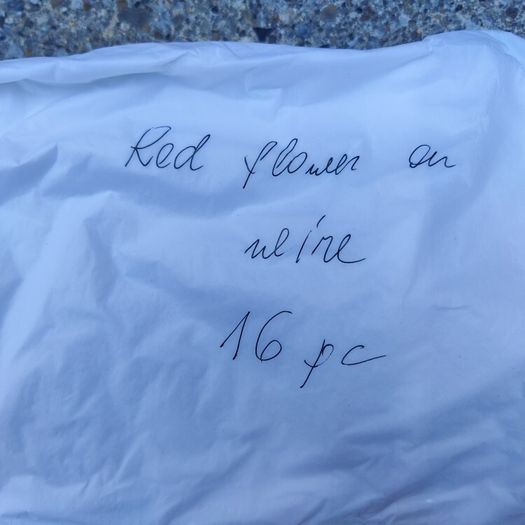 Red flower on
wire
16 pc